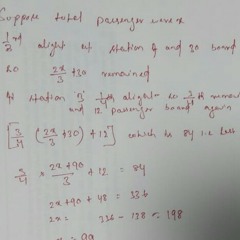 Suppose total passenger were x
1/3 rd alight at station Q and 30 board
so 2x/3 + 30 remained
At station 1/4th alight so 3/4th
and 12 passenger board again
[3/4 (2x/3 + 30) + 12] which is 84 i.e
3/4 × 2x+90/3 + 12 = 84
2x + 90 + 48 = 336
2x = 336 - 138 = 198